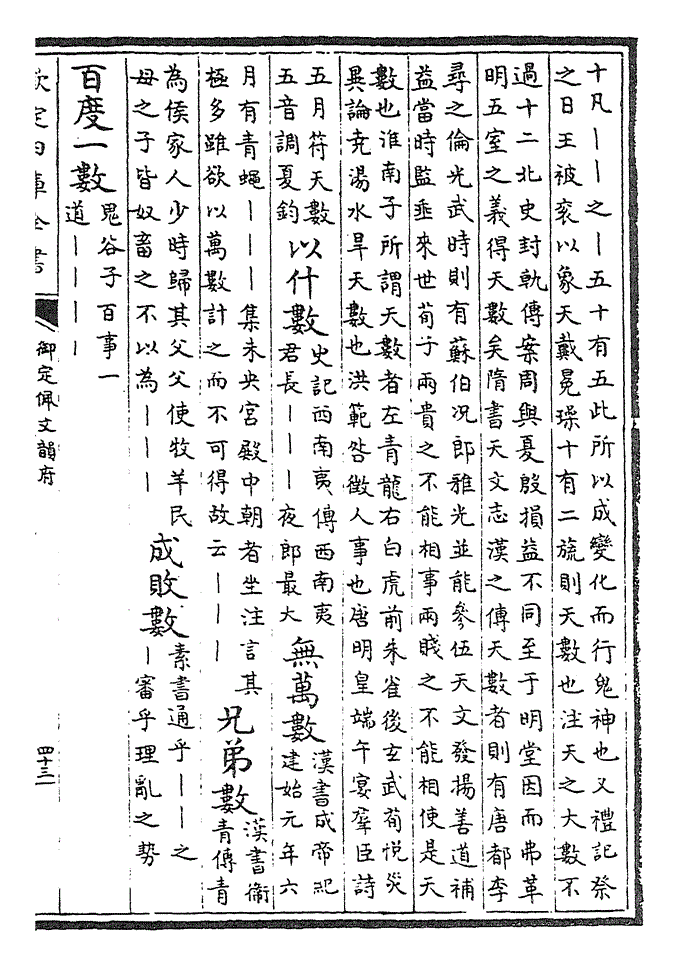 十凡丨丨之丨五十有五此所以成變化而行鬼神也又禮記祭
之日王被衮以象天戴冕璪十有二旒則天數也注天之大數不
過十二北史封軌傳案周與夏殷損益不同至于明堂因而弗革
明五室之義得天數矣隋書天文志漢之傳天數者則有唐都李
尋之倫光武時則有蘇伯况郎雅光並能參伍天文發揚善道補
益當時監垂來世荀子兩貴之不能相事兩賤之不能相使是天
數也淮南子所謂天數者左青龍右白虎前朱雀後玄武荀悅災
異論堯湯水旱天數也洪範咎徵人事也唐明皇端午宴羣臣詩
五月符天數
五音調夏鈞
以什數
史記西南夷傳西南夷
君長丨丨丨夜郎最大
無萬數
漢書成帝紀
建始元年六
月有青蠅丨丨丨集未央宫殿中朝者坐注言其
極多雖欲以萬數計之而不可得故云丨丨丨
兄弟數
漢書衛
青傳青
為侯家人少時歸其父父使牧羊民
母之子皆奴畜之不以為丨丨丨
成敗數
素書通乎丨丨之
丨審乎理亂之勢
百度一數
鬼谷子百事一
道丨丨丨丨
欽定四庫全書
御定佩文韻府
四十三